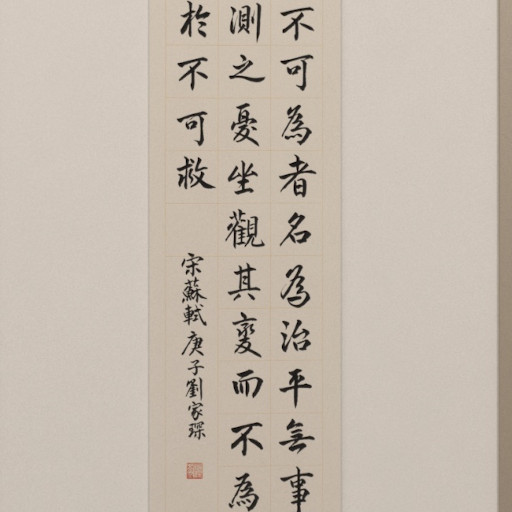 不可為者名為治平無事
測之憂坐觀其變而不為
於不可救
宋蘇軾庚子劉家琛